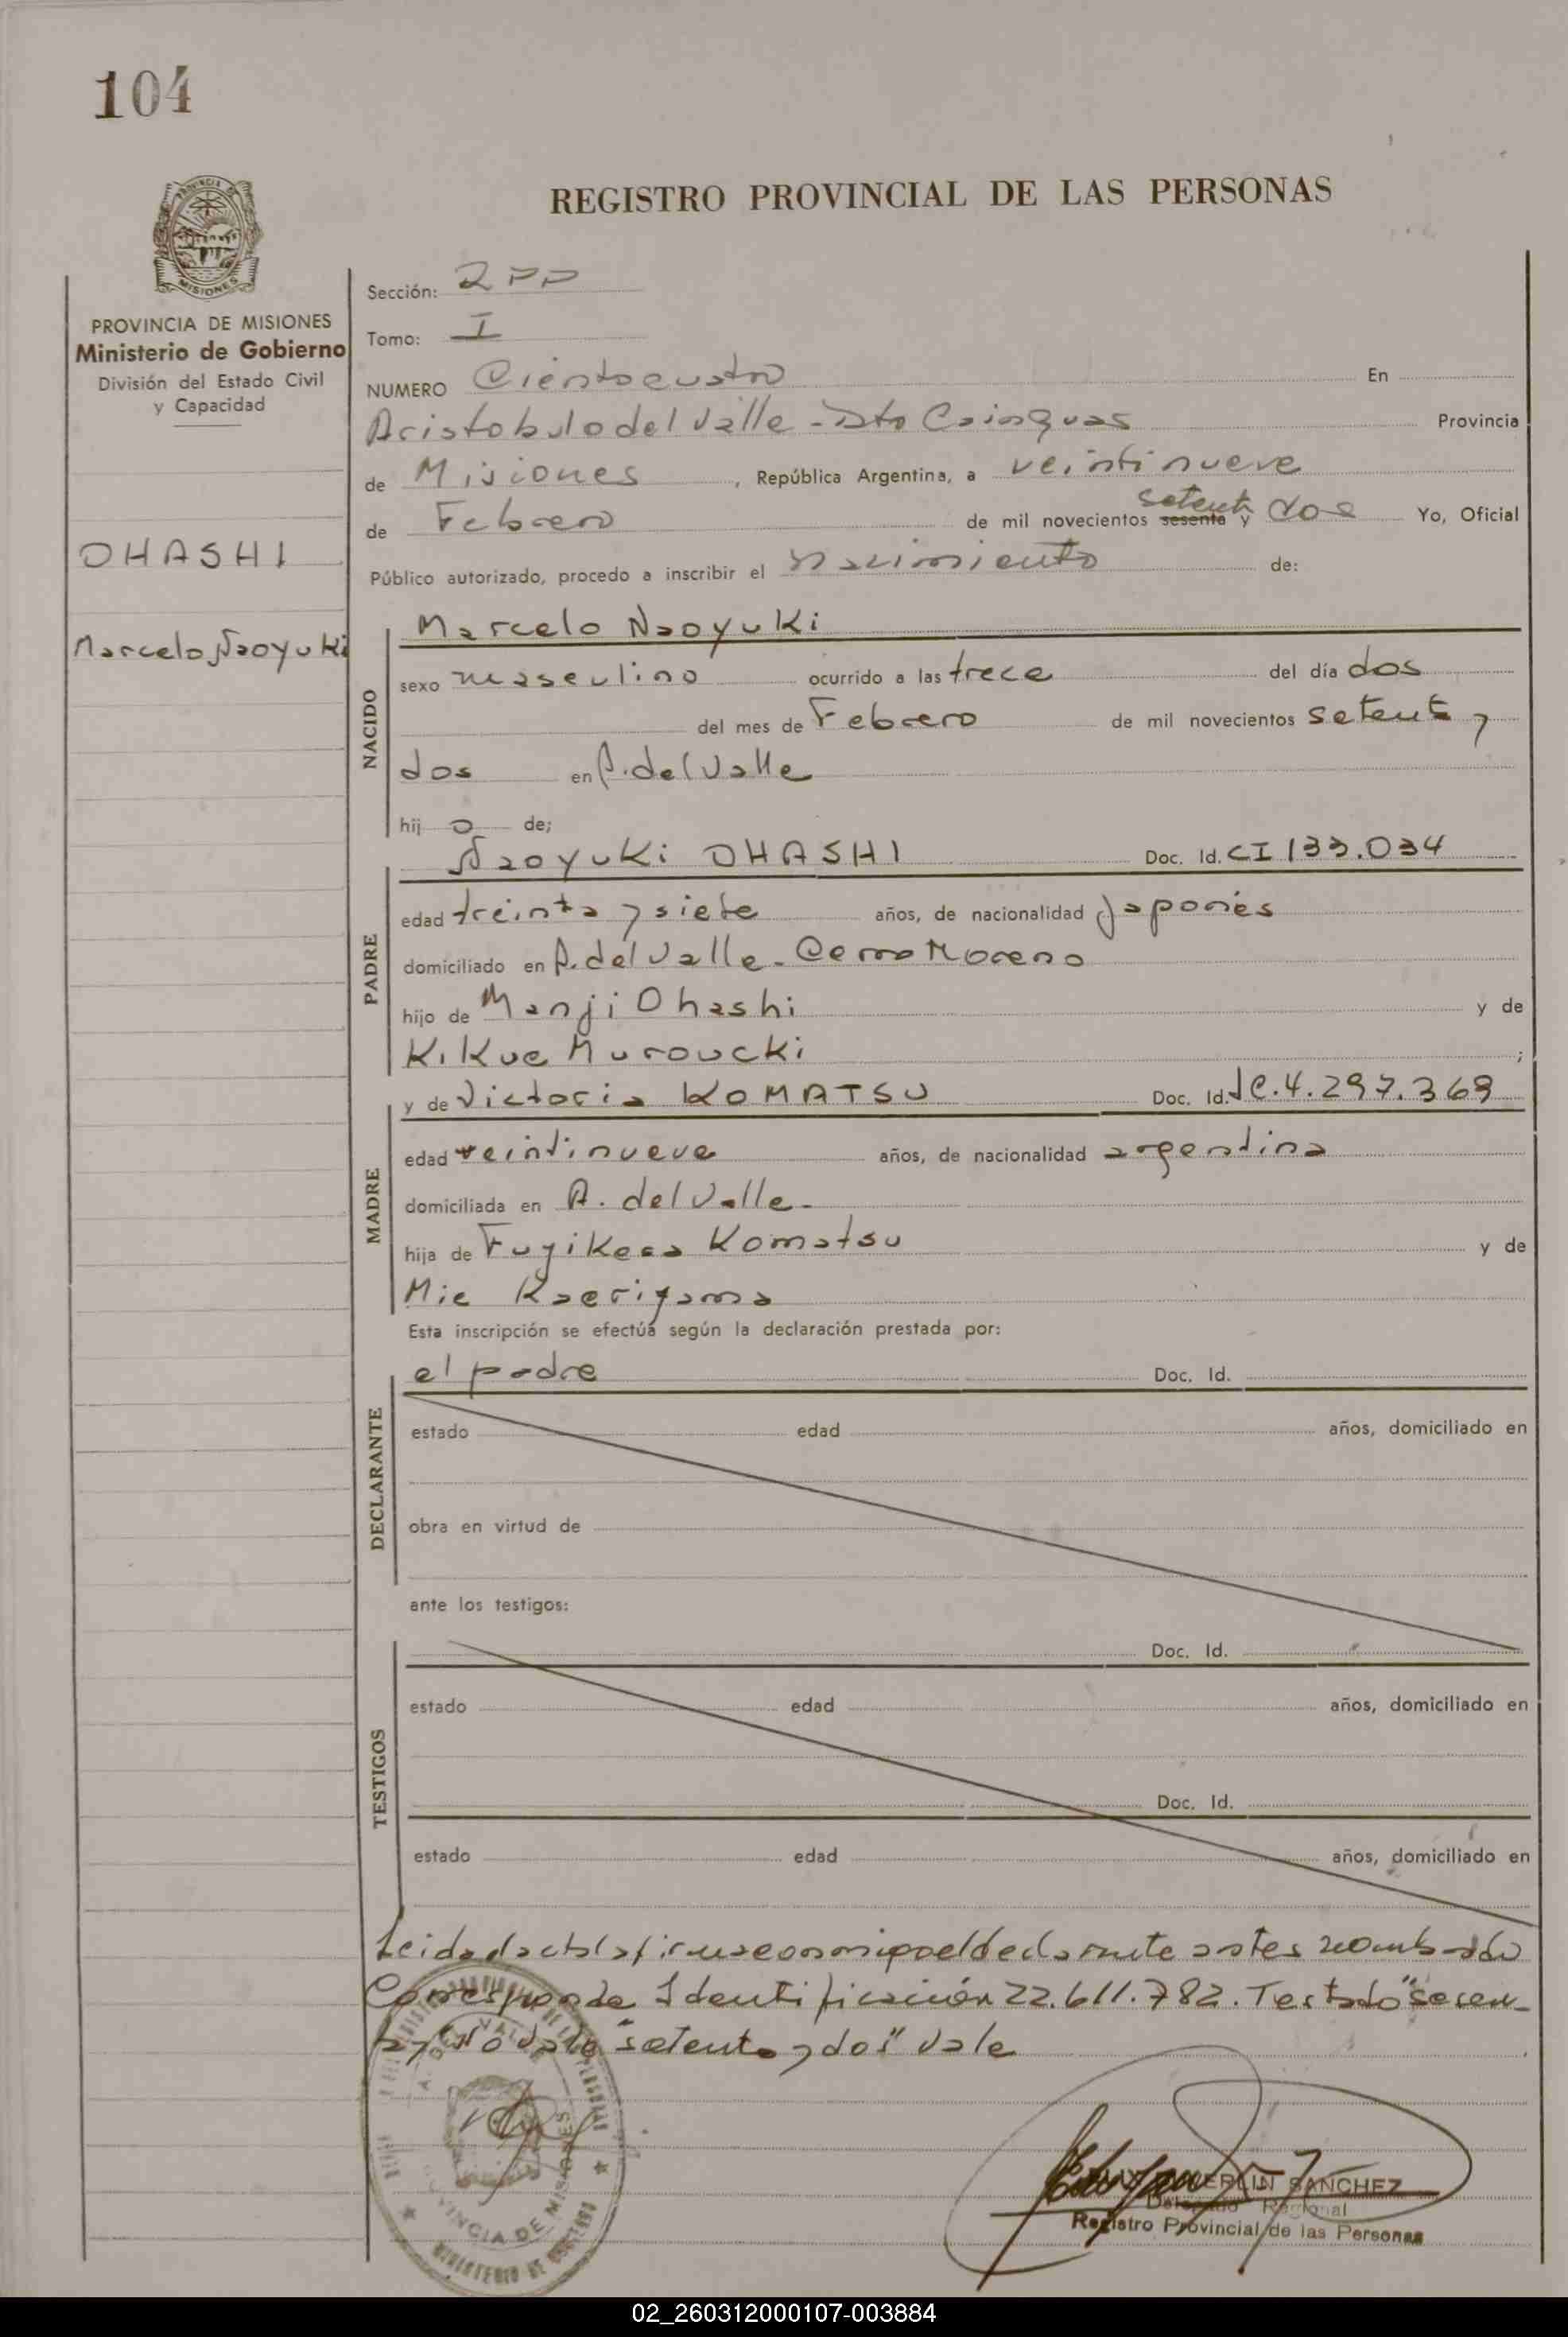 104
REGISTRO PROVINCIAL DE LAS PERSONAS
PROVINCIA DE MISIONES
Ministerio de Gobierno
División del Estado Civil
y Capacidad
OHASHI
Marcelo Naoyuki
Sección: RPP
Tomo: I
NUMERO Cientocuatro En
Aristobulo del Valle - Dto Cainguas Provincia
de Misiones, República Argentina, a veintinueve
de Febrero de mil novecientos sesenta setenta y dos Yo, Oficial
Público autorizado, procedo a inscribir el nacimiento de:
NACIDO
Marcelo Naoyuki
sexo masculino ocurrido a las trece del día dos
del mes de Febrero de mil novecientos setenta y
dos en A. del Valle
hij o de;
PADRE
Naoyuki OHASHI Doc. Id. CI 133.034
edad treinta y siete años, de nacionalidad Japonés
domiciliado en A. del Valle - Cerro Moreno
hijo de Manji Ohashi y de
Kikue Muroucki ;
MADRE
y de Victoria KOMATSU Doc. Id. LC. 4.297.369
edad veintinueve años, de nacionalidad argentina
domiciliada en A. del Valle -
hija de Komatsu y de
Mie Kaeriyama
Esta inscripción se efectúa según la declaración prestada por:
DECLARANTE
el padre Doc. Id.
estado edad años, domiciliado en
obra en virtud de
ante los testigos:
TESTIGOS
Doc. Id.
estado edad años, domiciliado en
Doc. Id.
estado edad años, domiciliado en
Leida el acta la firma conmigo el declarante antes nombrado
Corresponde Identificación 22.611.782. Testado "sesen-
ta y" No vale "setenta y dos" Vale
A. DEL VALLE
PROVINCIA DE MISIONES
MINISTERIO DE GOBIERNO
SANCHEZ
Delegado Regional
Registro Provincial de las Personas
02_260312000107-003884